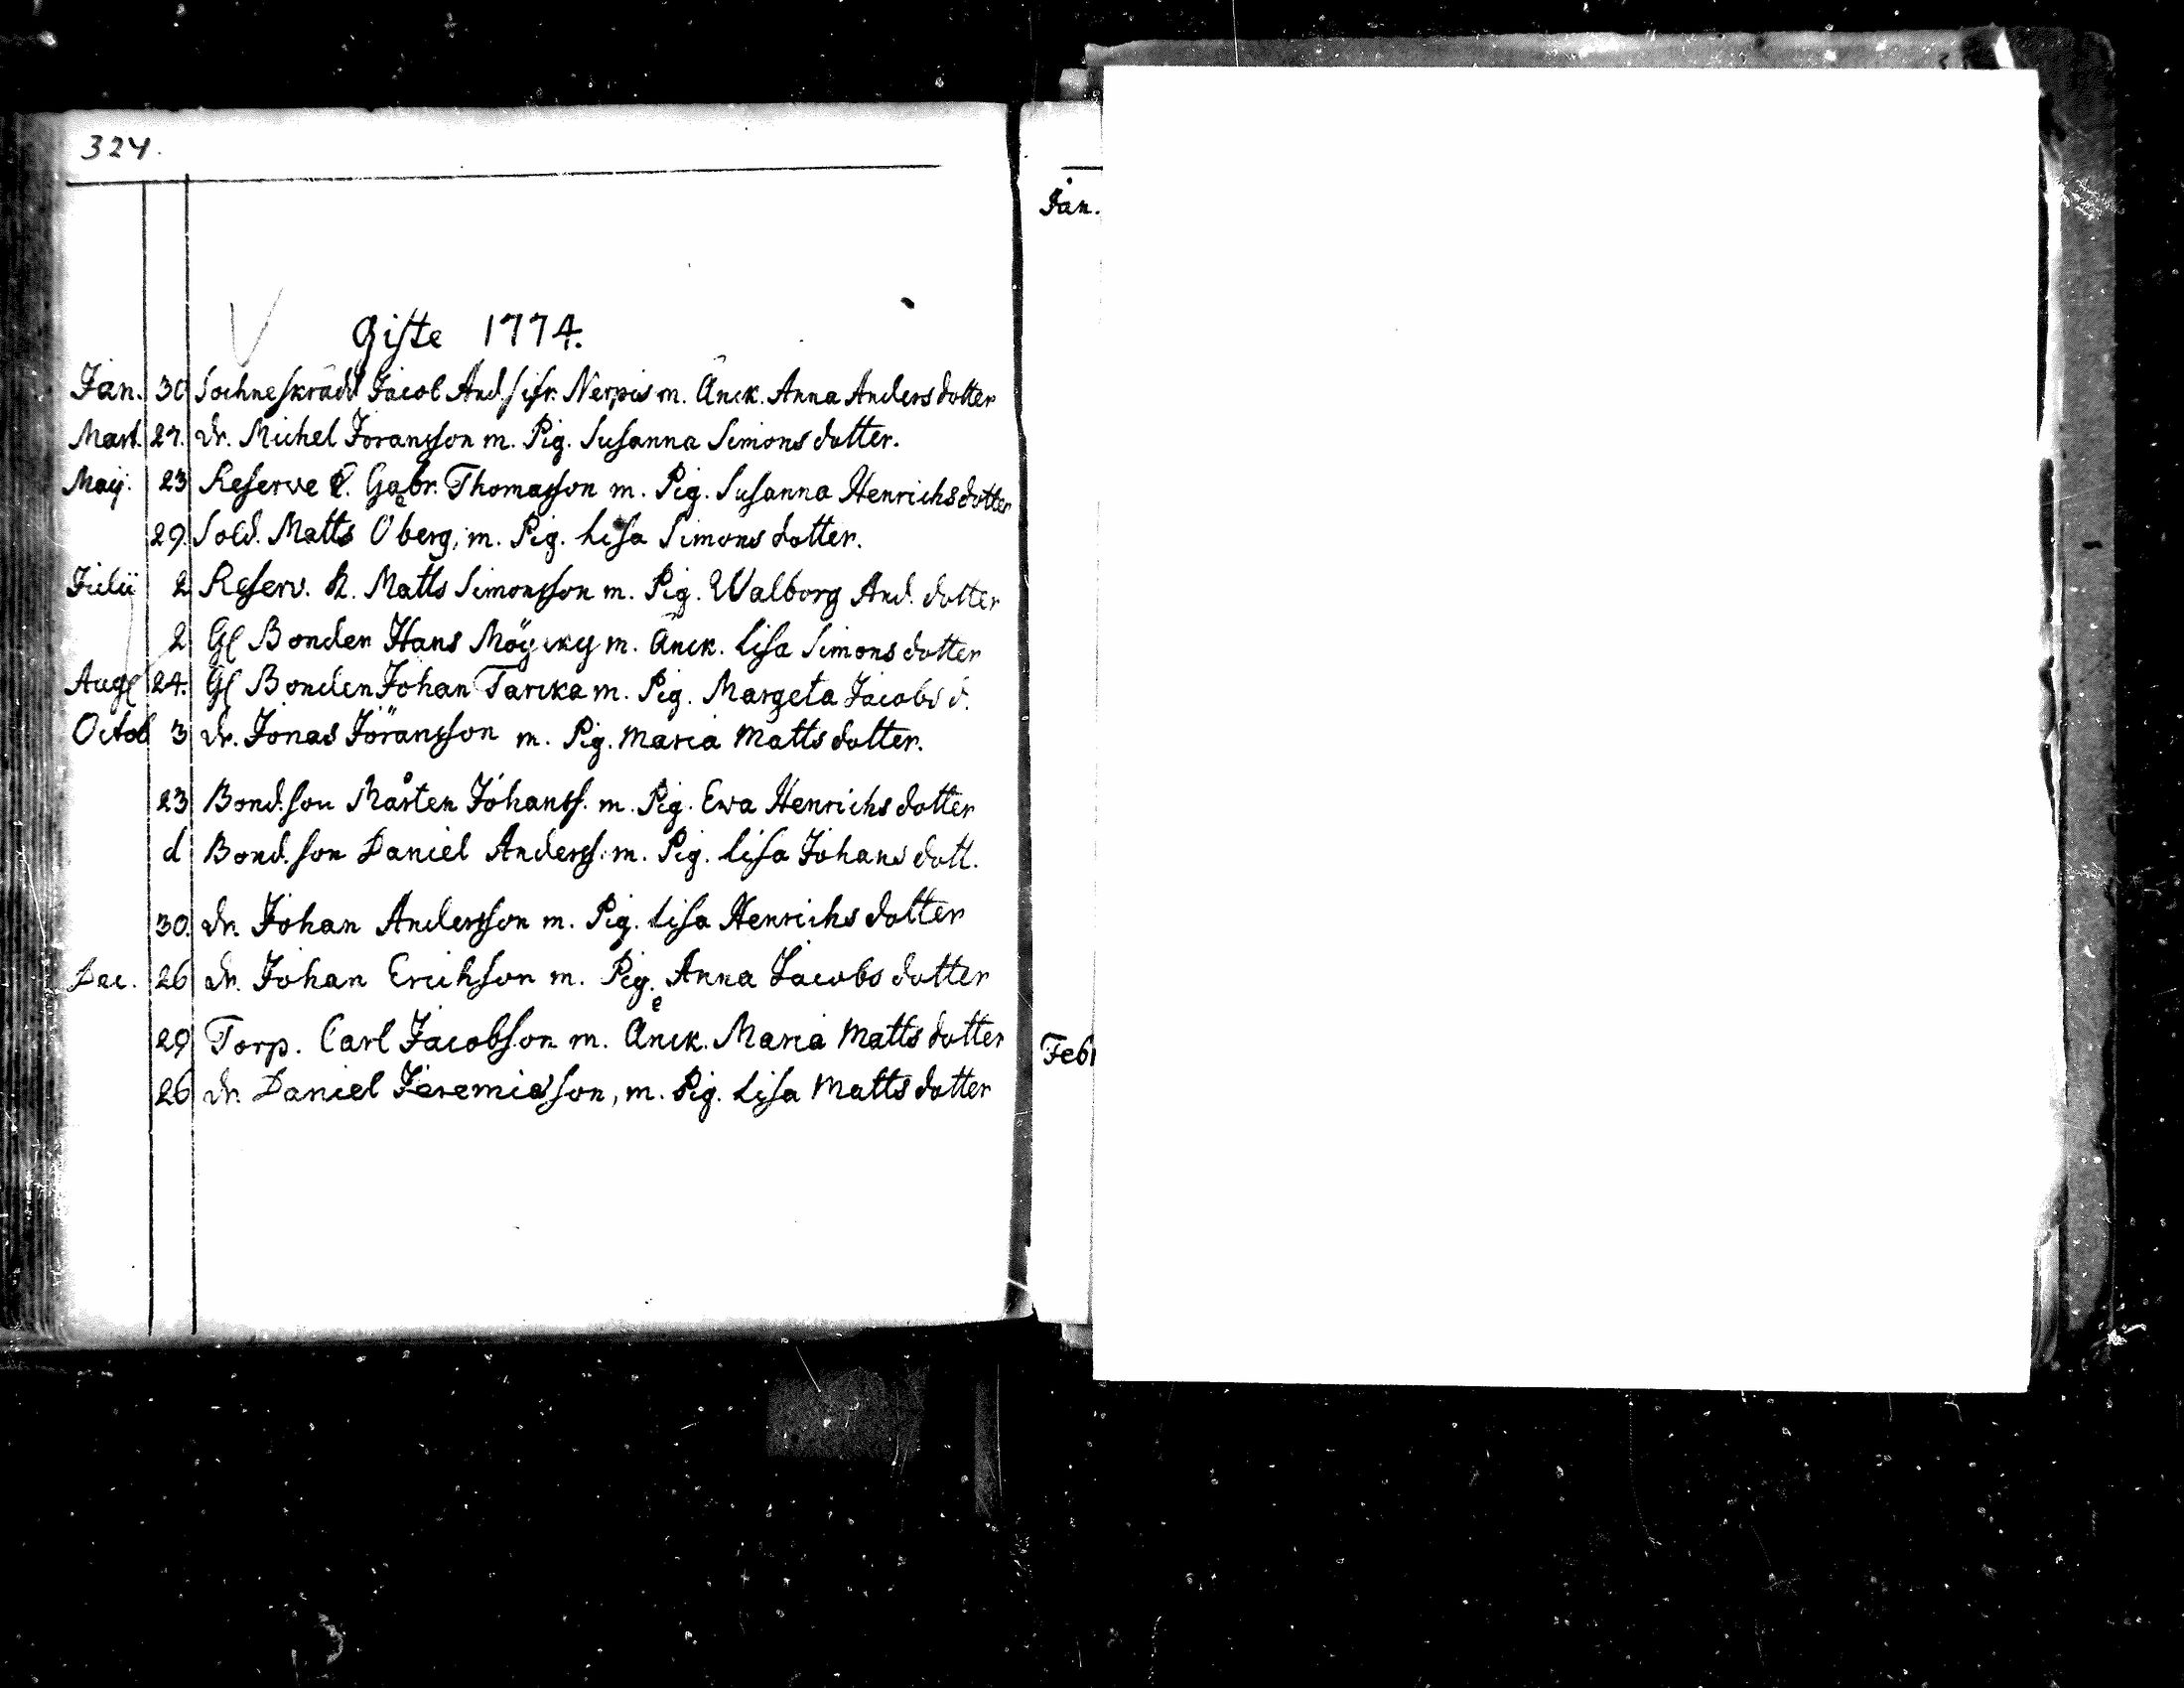 324.
Gifte 1774.
Jan. 30 Sochneskrädd Jacob And. ifr. Nerpis m. Änck. Anna Andersdotter
Mart. 27. dr. Michel Joransson m. Pig. Susanna Simonsdotter.
Maij. 23 Reserve Gabr. Thomasson m. Pig. Susanna Henrichsdotter
29. Sold. Matts Öberg, m. Pig. Lisa Simonsdotter.
Julii 2 Reserv. K. Matts Simonsson m. Pig. Walborg And. dotter
2 Gl Bonden Hans m. Änck. Lisa Simonsdotter
Aug 24. Gl Bonden Johan Tarcka m. Pig. Margeta Jacobs d.
Octob 3 dr. Jonas Jöransson m. Pig. Maria Mattsdotter.
23 Bond.son Mårten Johanss. m. Pig. Ewa Henrichsdotter
d Bond.son Daniel Anderss. m. Pig. Lisa Johansdott.
30. dr. Johan Andersson m. Pig. Lisa Henrichsdotter
Dec. 26 dr. Johan Erichson m. Pig. Anna Jacobsdotter
29 Torp. Carl Jacobson m. Änck. Maria Mattsdotter
26 dr. Daniel Jeremiasson, m. Pig. Lisa Mattsdotter
Jan.
Febr